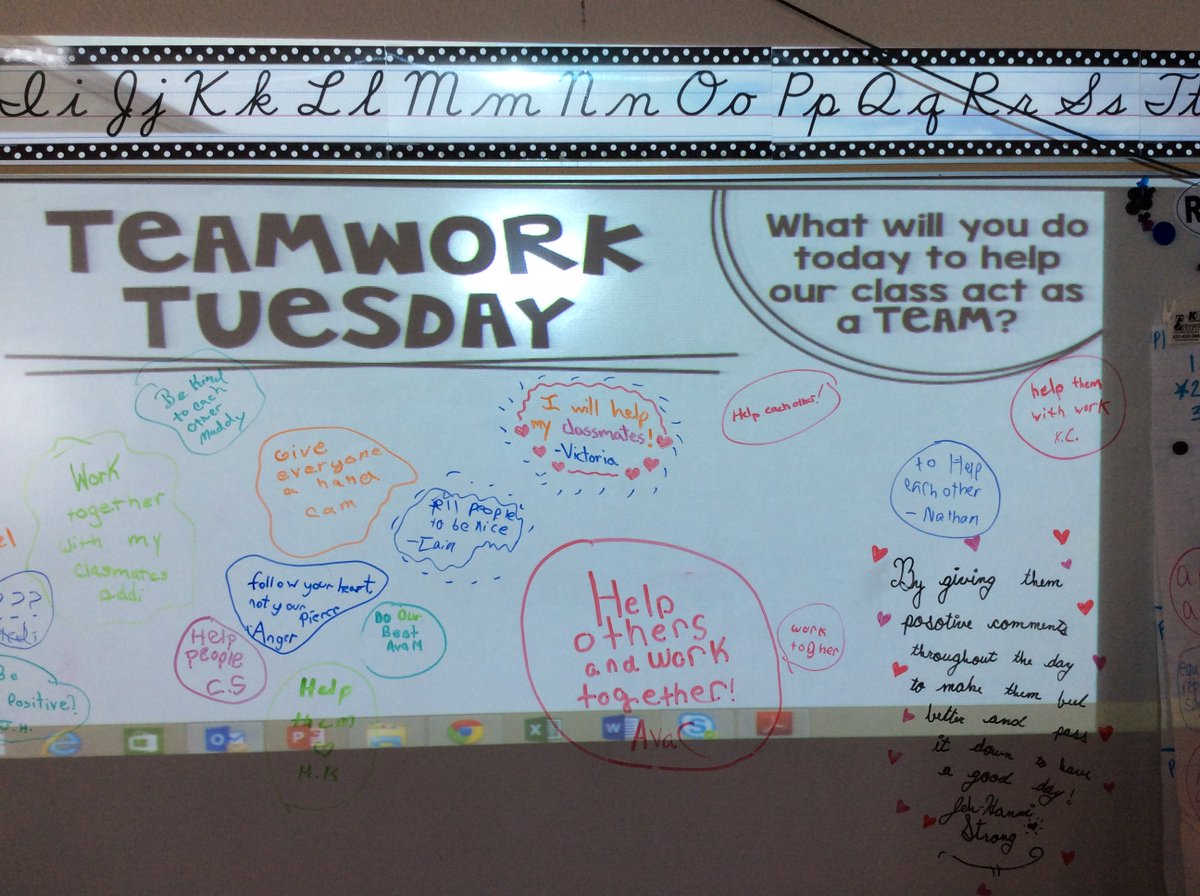 Ii Jj Kk Ll Mm Nn Oo Pp Qq Rr Ss Tt
TEAMWORK
TUESDAY
What will you do
today to help
our class act as
a TEAM?
Be Kind
to each
other
Maddy
I will help
my classmates!
-Victoria
Help each other!
help them
with work
K.C.
Work
together
with my
clasmates
Addi
Give
everyone
a hand
cam
tell people
to be nice
-Iain
to Help
each other
- Nathan
???
follow your heart,
not your
Anger
Do Our
Best
Ava M
Help
people
C.S
Help
others
and work
together!
Ava C
work
togher
By giving them
posotive comments
throughout the day
to make them feel
better and pass
it down to have
a good day!
Strong
Be
Positive!
J.H.
Help
them
H.K